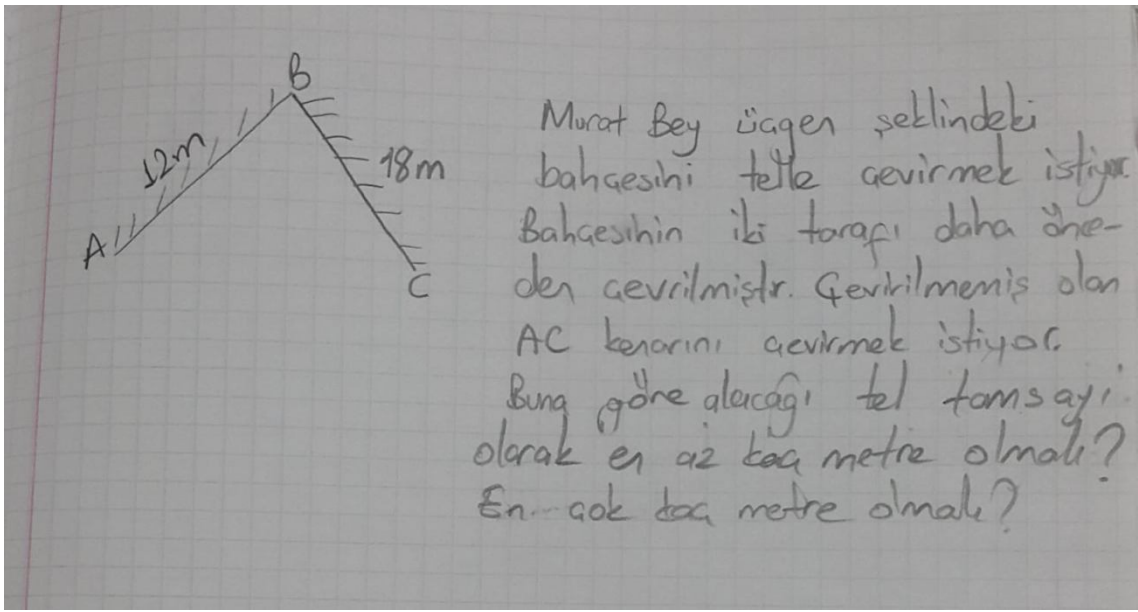 B
12m
18m
A
C
Murat Bey üçgen şeklindeki
bahçesini telle çevirmek istiyor.
Bahçesinin iki tarafı daha önce-
den çevrilmiştir. Çevirilmemiş olan
AC kenarını çevirmek istiyor.
Buna göre alacağı tel tamsayı
olarak en az kaç metre olmalı?
En çok kaç metre olmalı?